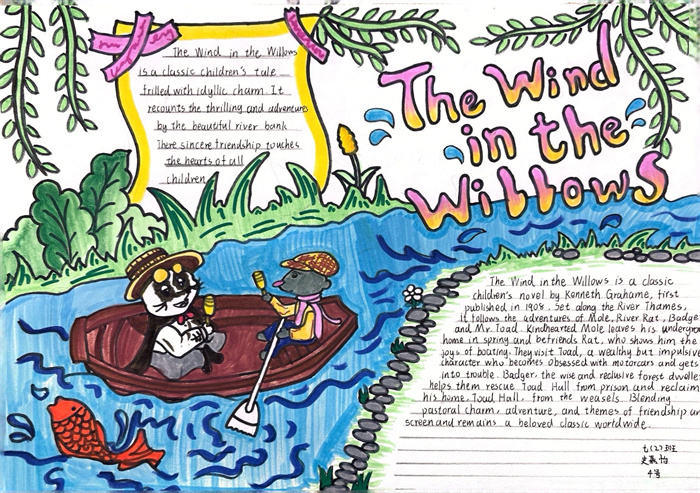 The Wind in the Willows
is a classic children's tale
frilled with idyllic charm. It
recounts the thrilling and adventures
by the beautiful river bank
There sincere friendship touches
the hearts of all
children
The Wind
in the
Willows
The Wind in the Willows is a classic
children's novel by Kenneth Grahame, first
published in 1908. Set along the River Thames,
it follows the adventures of Mole, River Rat, Badge
and Mr. Toad. Kindhearted Mole leaves his undergrou
home in spring and befriends Rat, who shows him the
joys of boating. They visit Toad, a wealthy but impulsive
character who becomes obsessed with motorcars and gets
into trouble. Badger, the wise and reclusive forest dweller
helps them rescue Toad Hall from prison and reclaim
his home, Toad Hall, from the weasels. Blending
pastoral charm, adventure, and themes of friendship an
screen and remains a beloved classic worldwide.
七(2)班
4号